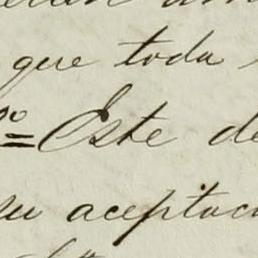 que toda
Este de
su aceptac